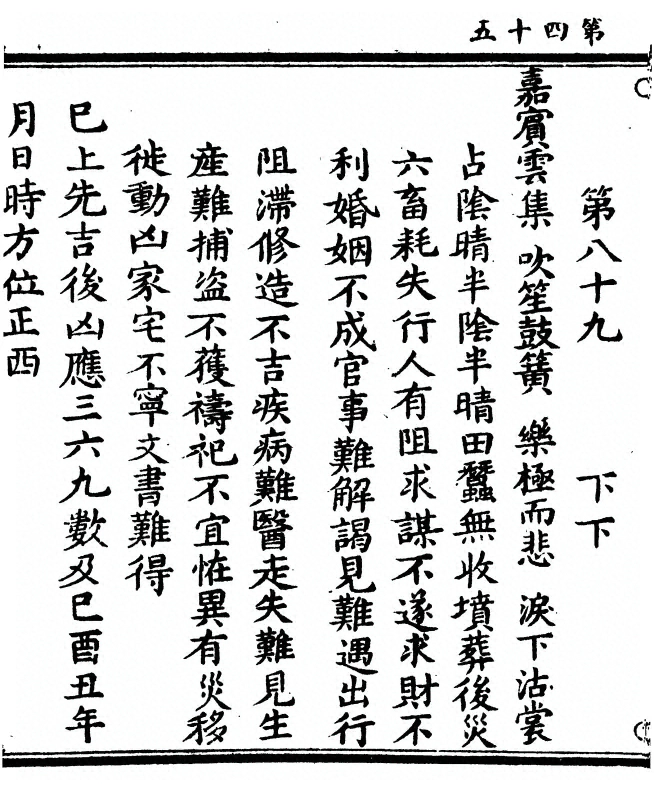 第四十五
第八十九 下下
嘉賓雲集 吹笙鼓簧 樂極而悲 淚下沾裳
占陰晴半陰半晴田蠶無收墳葬後災
六畜耗失行人有阻求謀不遂求財不
利婚姻不成官事難解謁見難遇出行
阻滯修造不吉疾病難醫走失難見生
產難捕盗不獲禱祀不宜恠異有災移
徙動凶家宅不寧文書難得
巳上先吉後凶應三六九數及巳酉丑年
月日時方位正西